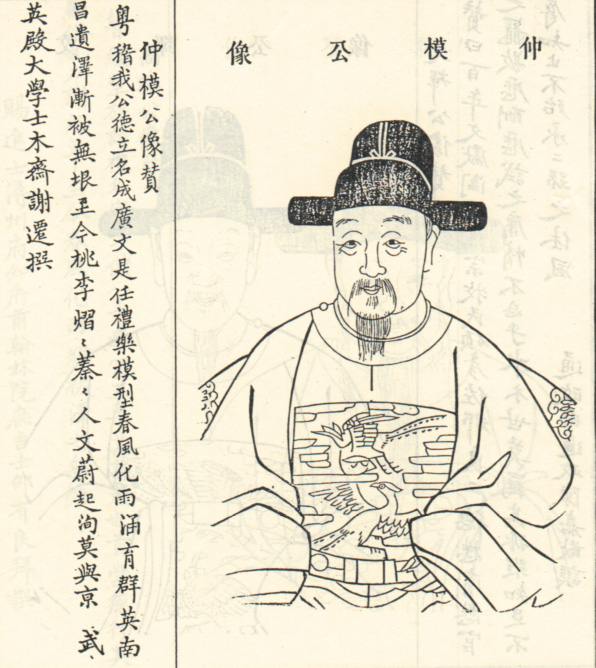 仲模公像
仲模公像贊
粤稽我公德立名成廣文是任禮樂模型春風化雨涵育群英南
昌遺澤漸被無垠至今桃李熠〻蓁〻人文蔚起洵莫與京 武
英殿大學士木齋謝遷撰